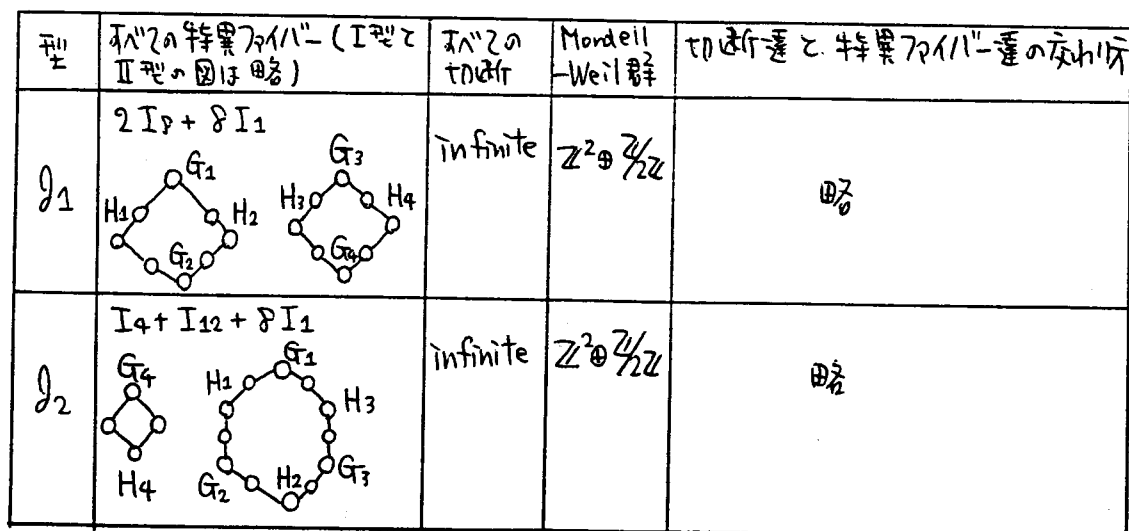 型
すべての特異ファイバー(I型と
II型の図は略)
すべての
切断
Mordell
-Weil群
切断達と特異ファイバー達の交わり方
J1
2I8 + 8I1
G1
H1
H2
G2
G3
H3
H4
G4
infinite
ℤ²⊕ℤ/2ℤ
略
J2
I4 + I12 + 8I1
G4
H4
G1
H1
H3
G2
H2
G3
infinite
ℤ²⊕ℤ/2ℤ
略